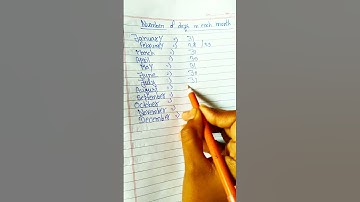 Number of days in each month
January 31
February 28/29
March 31
April 30
May 31
June 30
July 31
August
September
October
November
December